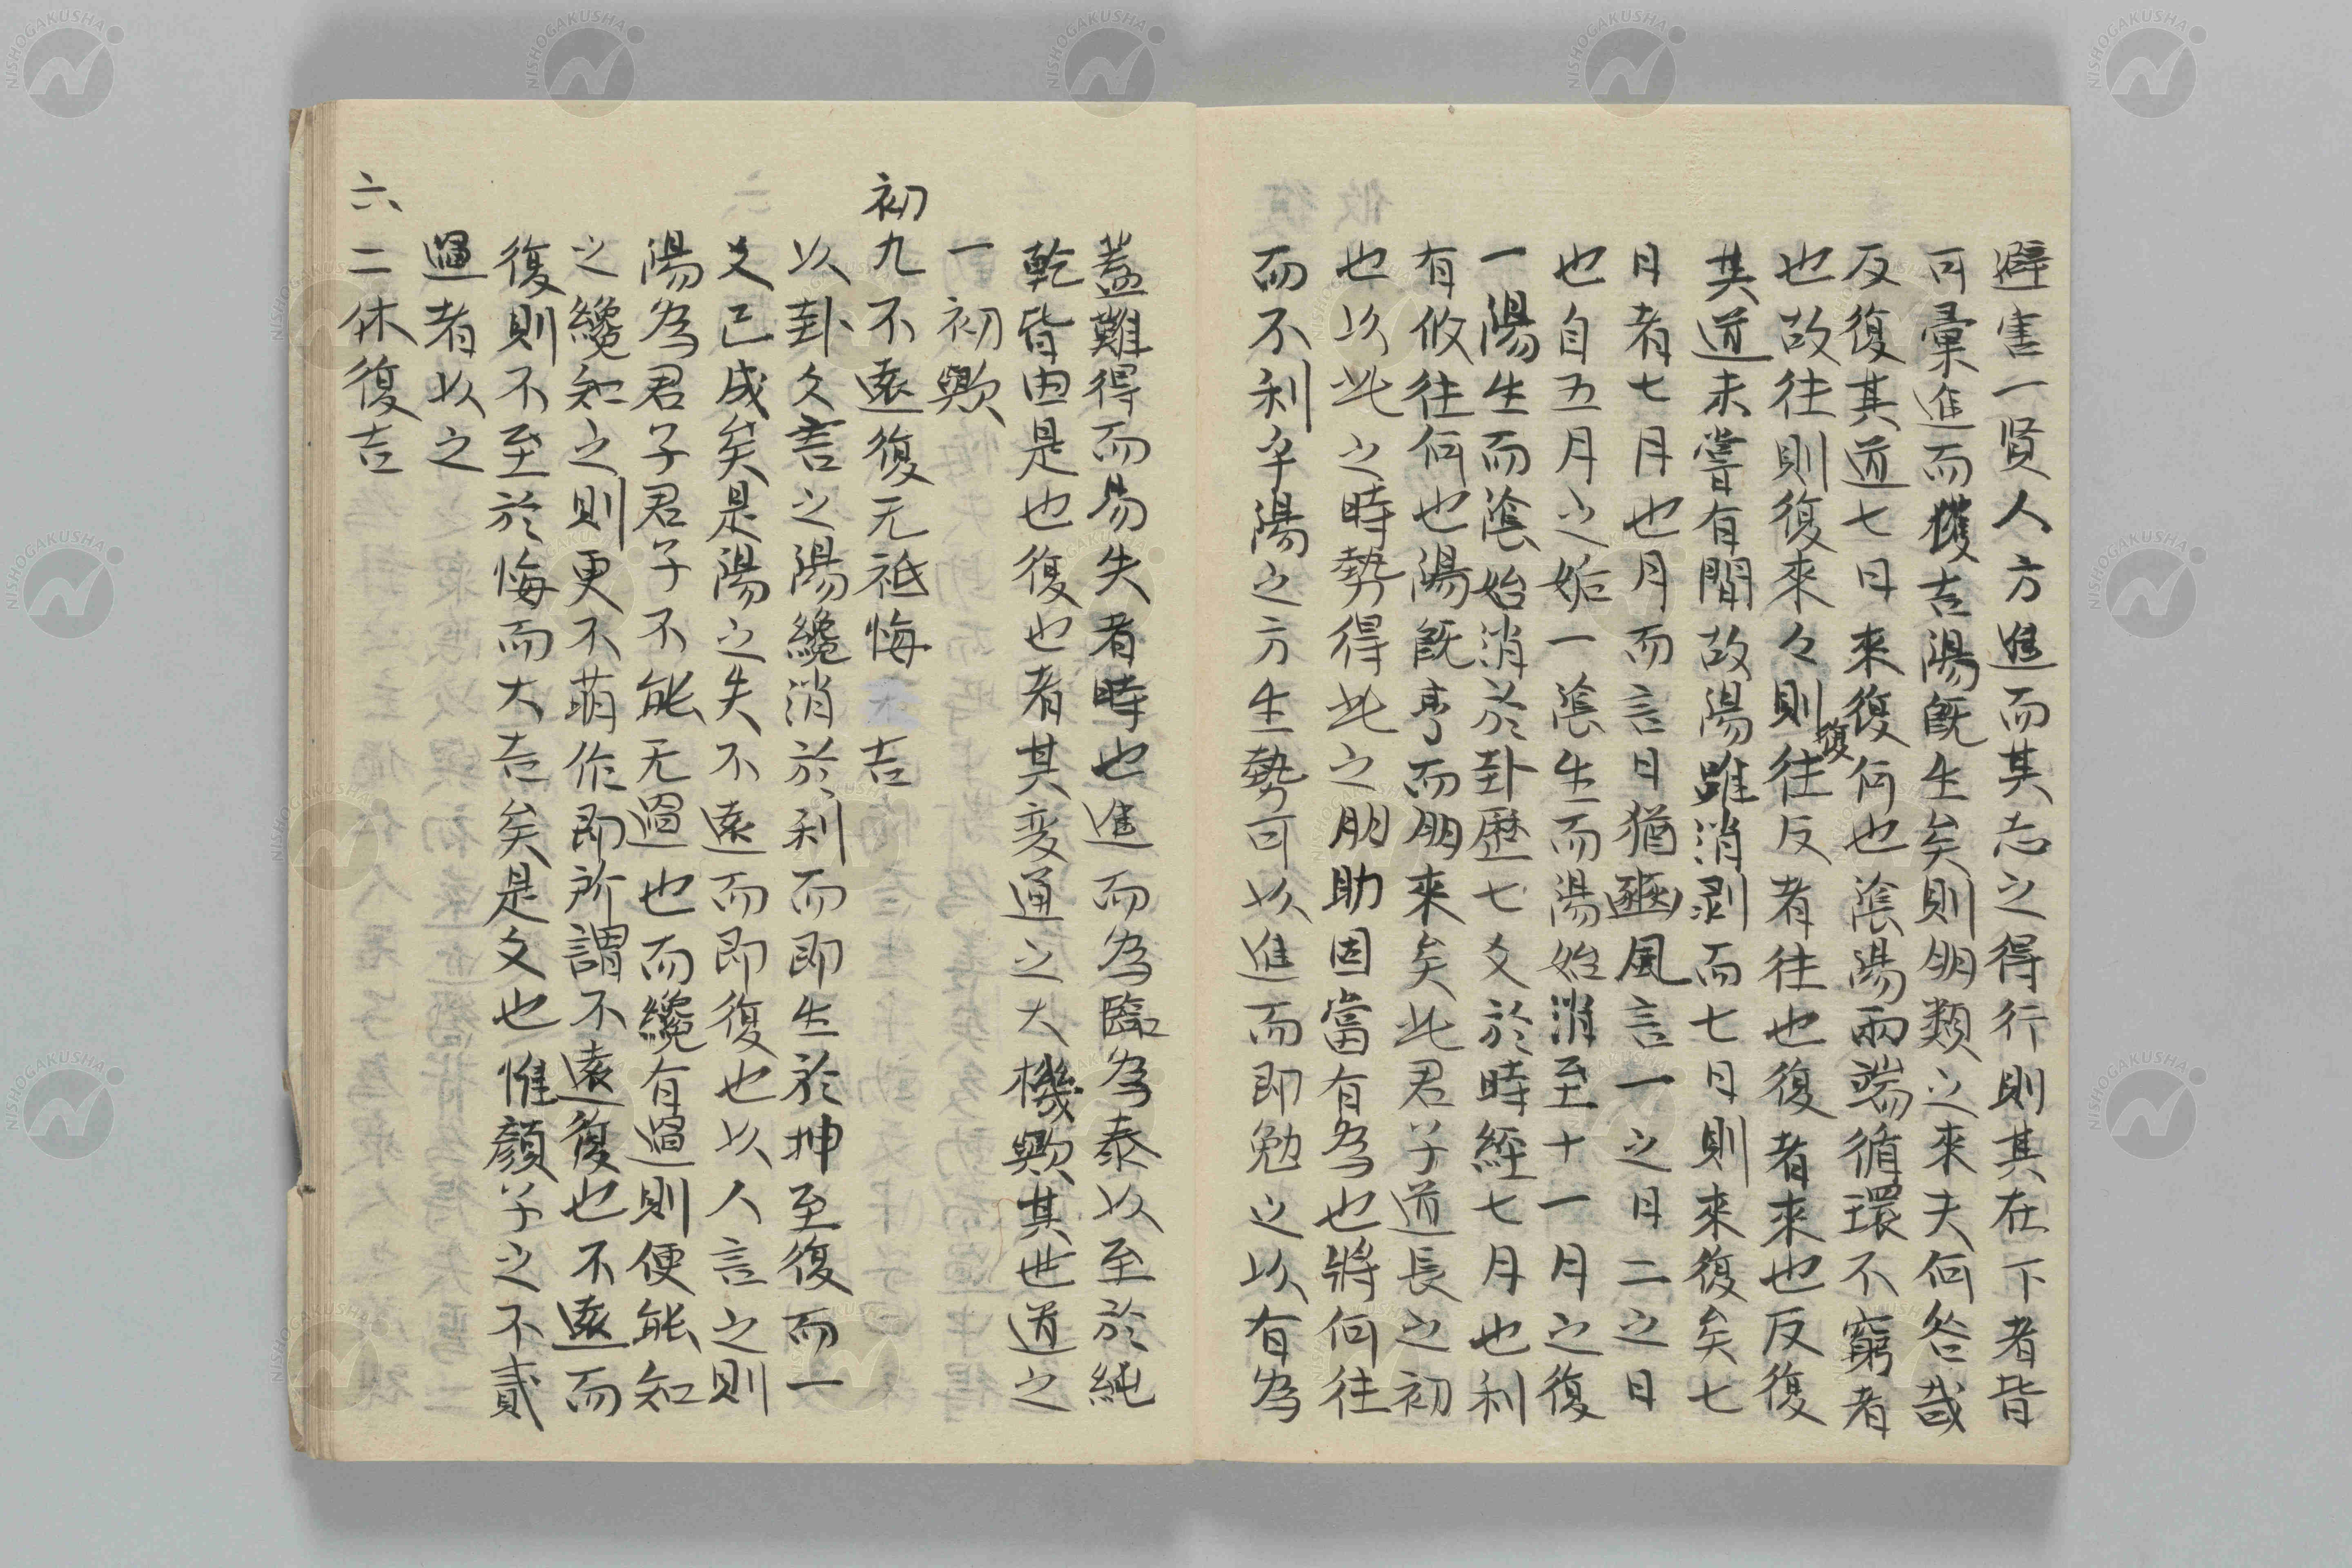 避害一賢人方進而其志之得行則其在下者皆
可彙進而獲吉陽既生矣則朋類之來夫何咎哉
反復其道七日來復何也陰陽兩端循環不窮者
也故往則復來々則復往反者往也復者來也反復
其道未嘗有間故陽雖消剥而七日則來復矣七
日者七月也月而言日猶豳風言一之日二之日
也自五月之姤一陰生而陽始消至十一月之復
一陽生而陰始消於卦歴七爻於時經七月也利
有攸往何也陽既亨而朋來矣此君子道長之初
也以此之時勢得此之朋助固當有為也將何往
而不利乎陽之方生勢可以進而即勉之以有為
蓋難得而易失者時也進而為臨為泰以至於純
乾皆由是也復也者其変通之大機歟其世道之
一初歟
初九不遠復无祗悔吉
以卦爻言之陽纔消於剥而即生於坤至復而一
爻已成矣是陽之失不遠而即復也以人言之則
陽為君子君子不能无過也而纔有過則便能知
之纔知之則更不萌作即所謂不遠復也不遠而
復則不至於悔而大吉矣是爻也惟顔子之不貳
過者以之
六二休復吉
NISHOGAKUSHA